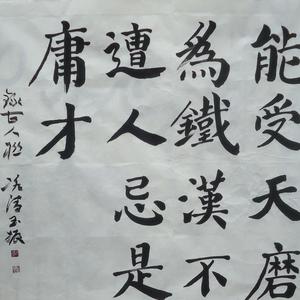 能受天磨
為鐵漢不
遭人忌是
庸才
錄古人聯